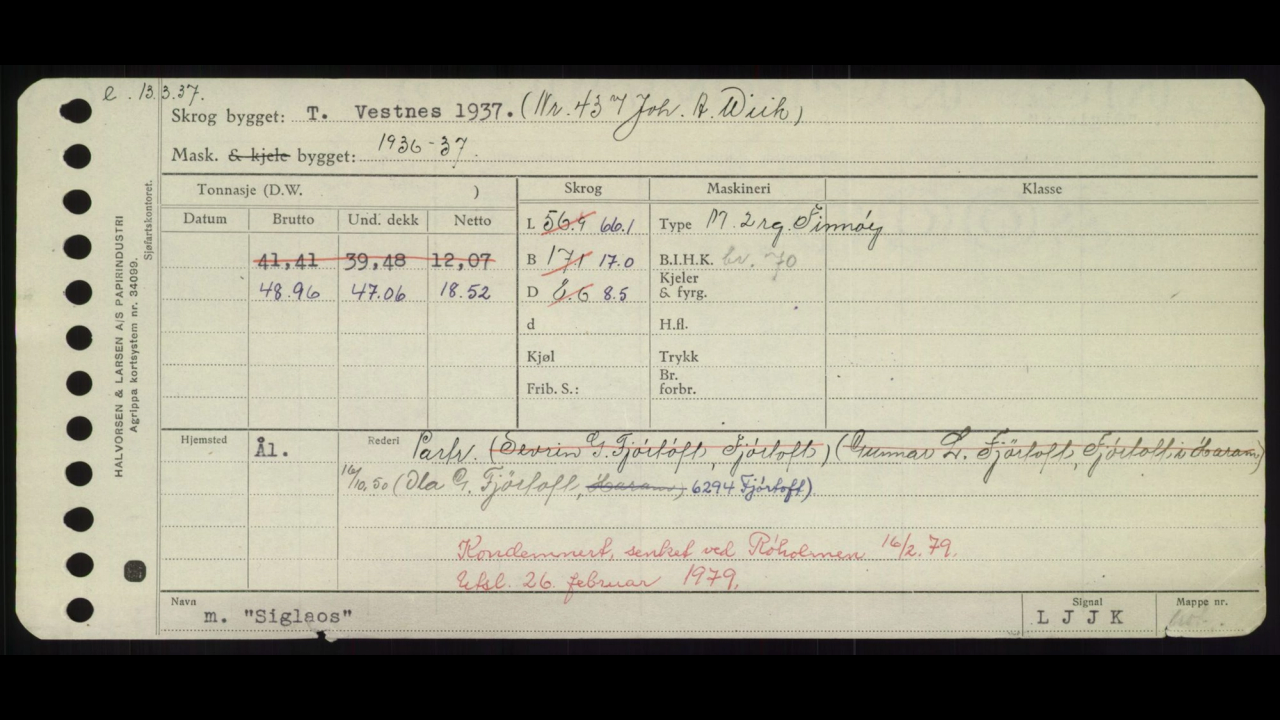 e. 13.3.37.
Skrog bygget: T. Vestnes 1937. (Nr. 437 Joh. A. Wiik)
Mask. & kjele bygget: 1936-37.
Tonnasje (D.W. ) Skrog Maskineri Klasse
Datum Brutto Und. dekk Netto
L 56.4 66.1 Type M. 2 rg. Finnöy
41,41 39,48 12,07 B 17.1 17.0 B.I.H.K. br. 70
48.96 47.06 18.52 D 8.6 8.5 Kjeler & fyrg.
d H.fl.
Kjøl Trykk
Frib. S.: Br. forbr.
Hjemsted Ål. Rederi Partr. (Sevrin G. Fjörtöft, Fjörtoft) (Gunnar L. Fjörtoft, Fjörtoft i Haram)
16/10.50 (Ola G. Fjörtoft, Haram) 6294 Fjörtoft)
Kondemnert, senket ved Röholmen 16/2.79.
Utsl. 26. februar 1979.
Navn m. "Siglaos" Signal L J J K Mappe nr.
HALVORSEN & LARSEN A/S PAPIRINDUSTRI
Agrippa kortsystem nr. 34099.
Sjøfartskontoret.